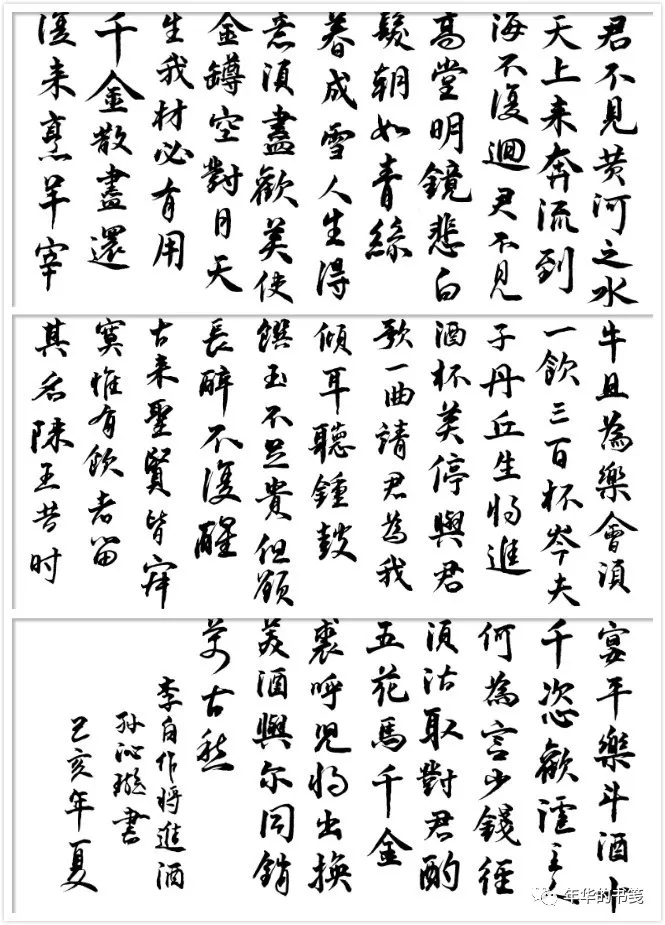 君不見黄河之水
天上来奔流到
海不復迴君不見
高堂明鏡悲白
髮朝如青絲
暮成雪人生得
意須盡歡莫使
金罇空對月天
生我材必有用
千金散盡還
復来烹羊宰
牛且為樂會須
一飲三百杯岑夫
子丹丘生將進
酒杯莫停與君
歌一曲請君為我
傾耳聽鍾鼓
饌玉不足貴但願
長醉不復醒
古来聖賢皆寂
寞惟有飲者留
其名陳王昔时
宴平樂斗酒十
千恣歡謔主人
何為言少錢徑
須沽取對君酌
五花馬千金
裘呼兒將出換
美酒與尔同銷
萬古愁
李白作將進酒
孙沁璇書
己亥年夏
年华的书笺